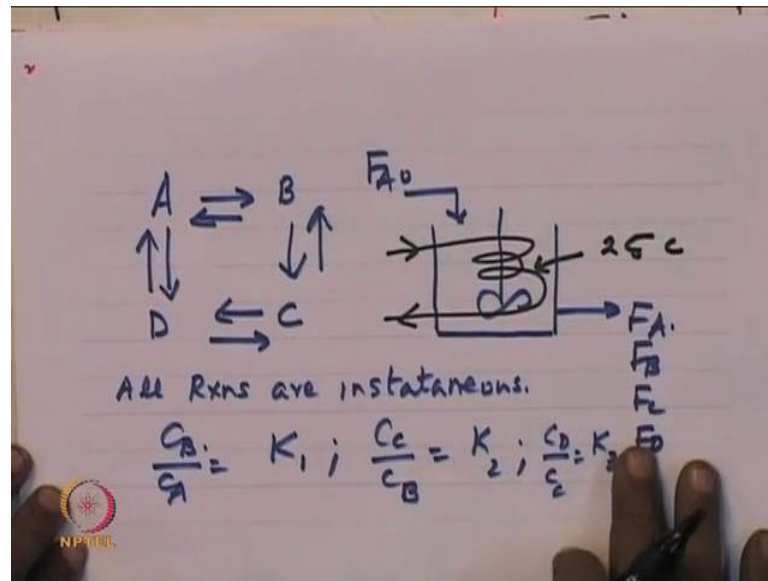 A ⇌ B
F_A0
25 C
D ⇌ C
F_A.
F_B
F_C
F_D
All Rxns are instataneous.
C_B/C_A = K_1 ; C_C/C_B = K_2 ; C_D/C_C = K_3
NPTEL